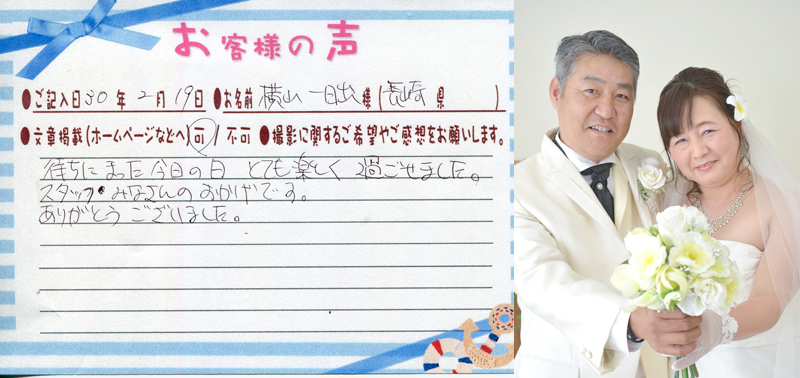 お客様の声
●ご記入日 30 年 2 月 19 日 ●お名前 横山 様 (長崎 県 )
●文章掲載(ホームページなどへ) 可 / 不可 ●撮影に関するご希望やご感想をお願いします。
待ちにまった今日の日 とても楽しく 過ごせました。
スタッフ・みなさんのおかげです。
ありがとうございました。